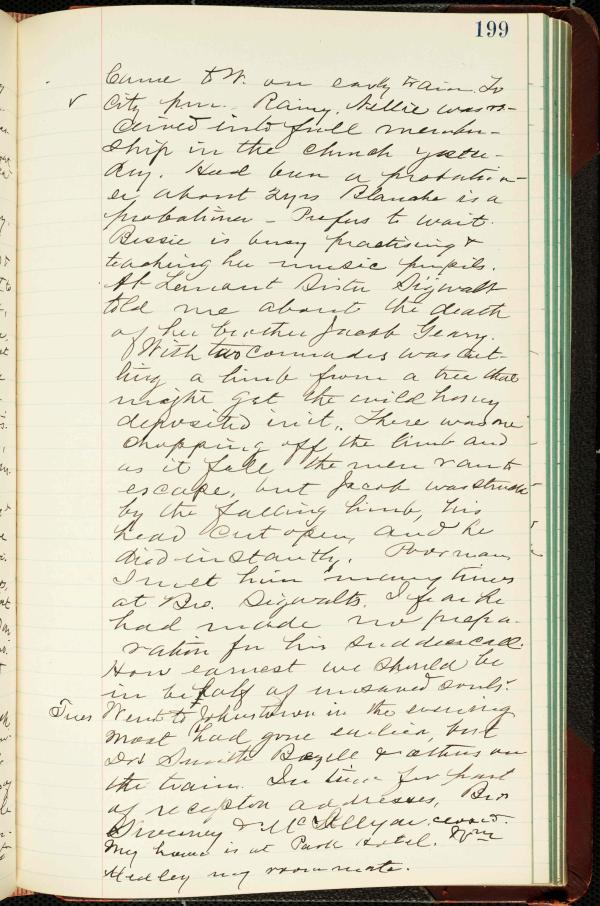 199
Came to W. on early train. To
✓ City p.m. Rainy. Nellie was re-
ceived into full member-
ship in the church yester-
day. Had been a probation-
er about 2 yrs Blanche is a
probationer - Prefers to wait.
Bessie is busy practising &
teaching her music pupils.
At Lemont Sister Sigwalt
told me about the death
of her brother Jacob Geary.
With two comrades was cut-
ting a limb from a tree that
might get the wild honey
deposited in it. There was one
chopping off the limb and
as it fell the men ran to
escape, but Jacob was struck
by the falling limb, his
head cut open, and he
died instantly. Poor man
I met him many times
at Bro. Sigwalts. I fear he
had made no prepa-
ration for his sudden call.
How earnest we should be
in behalf of unsaved souls.
Tues Went to Johnstown in the evening
most had gone earlier, but
Drs Smith & others on
the train. In time for part
of reception addresses, Bros
Sweeney &
My home is at Park Hotel. Wm
Medley my roommate.